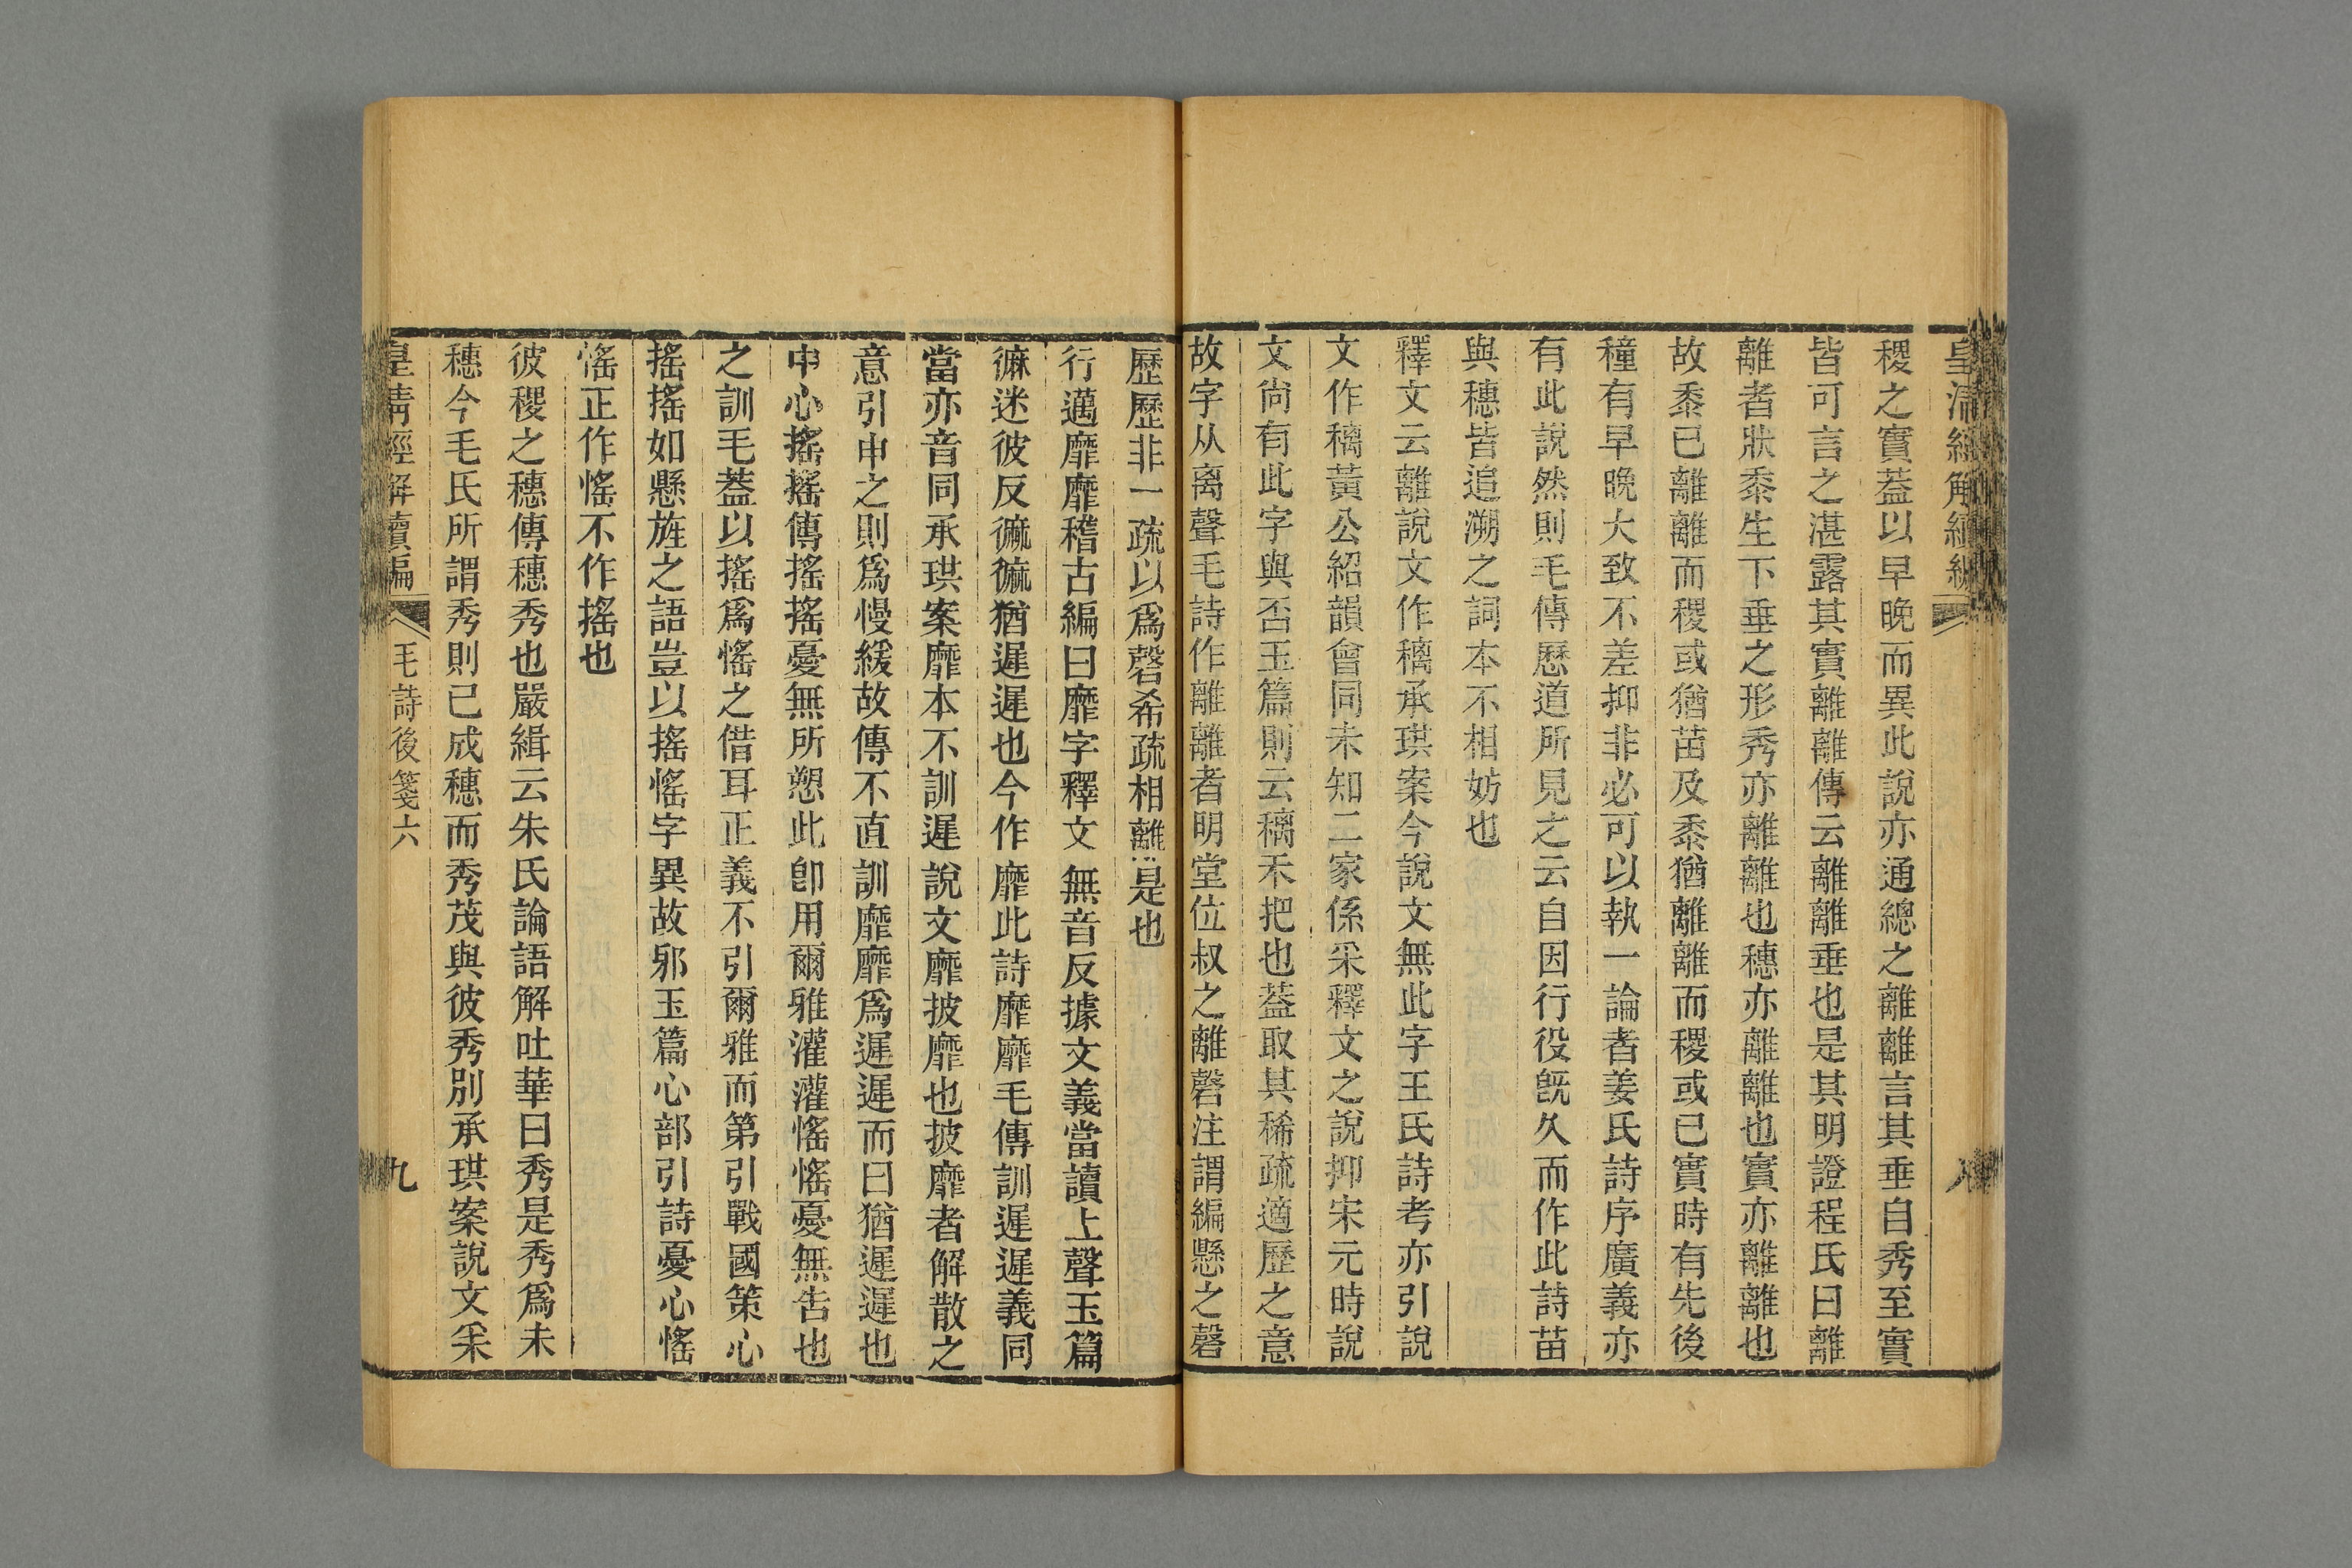 皇清經解續編
八
稷之實蓋以早晚而異此說亦通總之離離言其垂自秀至實
皆可言之湛露其實離離傳云離離垂也是其明證程氏曰離
離者狀黍生下垂之形秀亦離離也穗亦離離也實亦離離也
故黍已離離而稷或猶苗及黍猶離離而稷或已實時有先後
穜有早晚大致不差抑非必可以執一論者姜氏詩序廣義亦
有此說然則毛傳歷道所見之云自因行役旣久而作此詩苗
與穗皆追溯之詞本不相妨也
釋文云離說文作穲承珙案今說文無此字王氏詩考亦引說
文作穲黃公紹韻會同未知二家係采釋文之說抑宋元時說
文尚有此字與否玉篇則云穲禾把也蓋取其稀疏適歷之意
故字从离聲毛詩作離離者明堂位叔之離磬注謂編懸之磬
歷歷非一疏以爲磬希疏相離是也
行邁靡靡稽古編曰靡字釋文無音反據文義當讀上聲玉篇
𢕟迷彼反𢕟𢕟猶遲遲也今作靡此詩靡靡毛傳訓遲遲義同
當亦音同承珙案靡本不訓遲說文靡披靡也披靡者解散之
意引申之則爲慢緩故傳不直訓靡靡爲遲遲而曰猶遲遲也
中心搖搖傳搖搖憂無所愬此卽用爾雅灌灌愮愮憂無告也
之訓毛蓋以搖爲愮之借耳正義不引爾雅而第引戰國策心
搖搖如懸旌之語豈以搖愮字異故邪玉篇心部引詩憂心愮
愮正作愮不作搖也
彼稷之穗傳穗秀也嚴緝云朱氏論語解吐華曰秀是秀爲未
穗今毛氏所謂秀則已成穗而秀茂與彼秀別承珙案說文采
皇清經解續編
毛詩後箋六
九